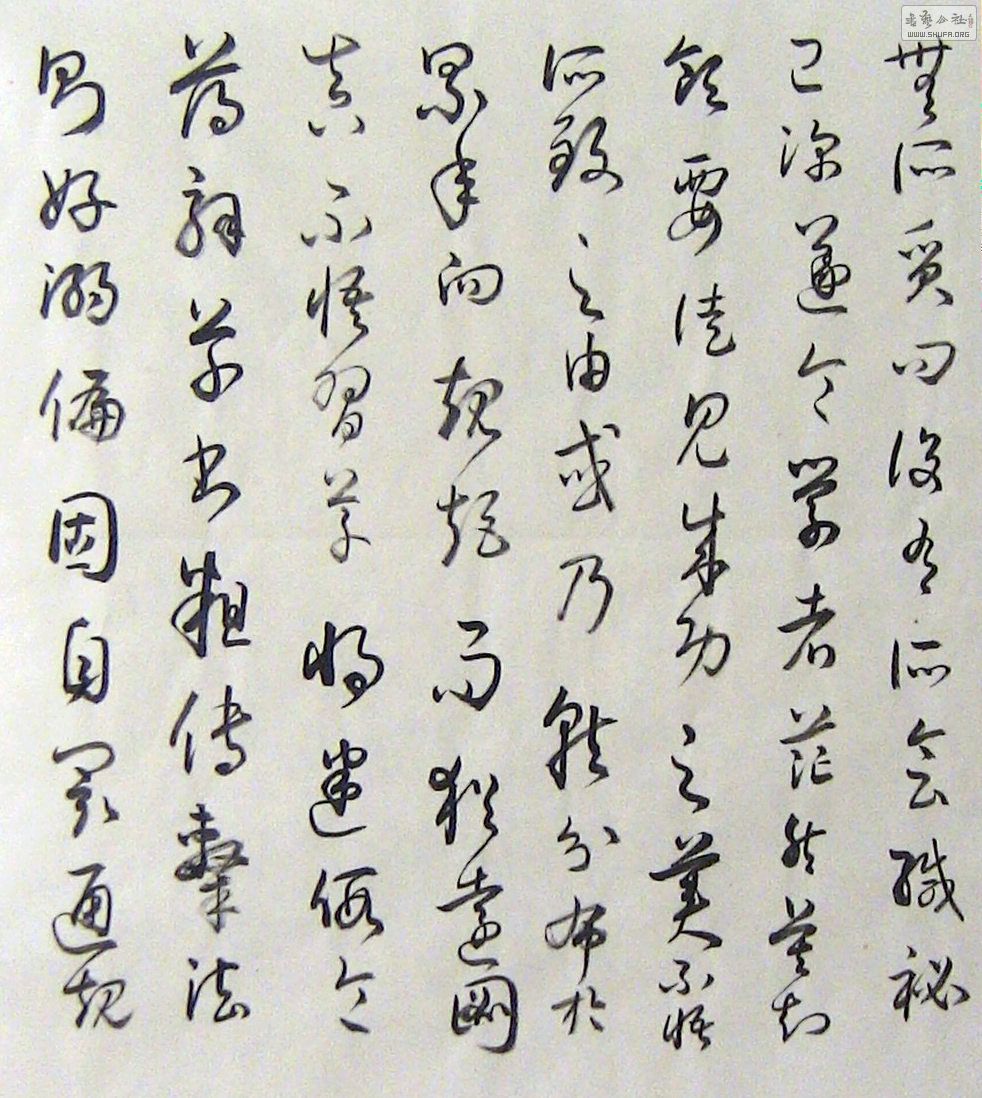 無所質問後有所會緘祕
已深遂令學者茫然莫知
領要徒見成功之美不悟
所致之由或乃就分布於
累年向規矩而猶遠圖
真不悟習草將迷假令
薄解草書粗傳隸法
則好溺偏固自閡通規
書藝公社
WWW.SHUFA.ORG